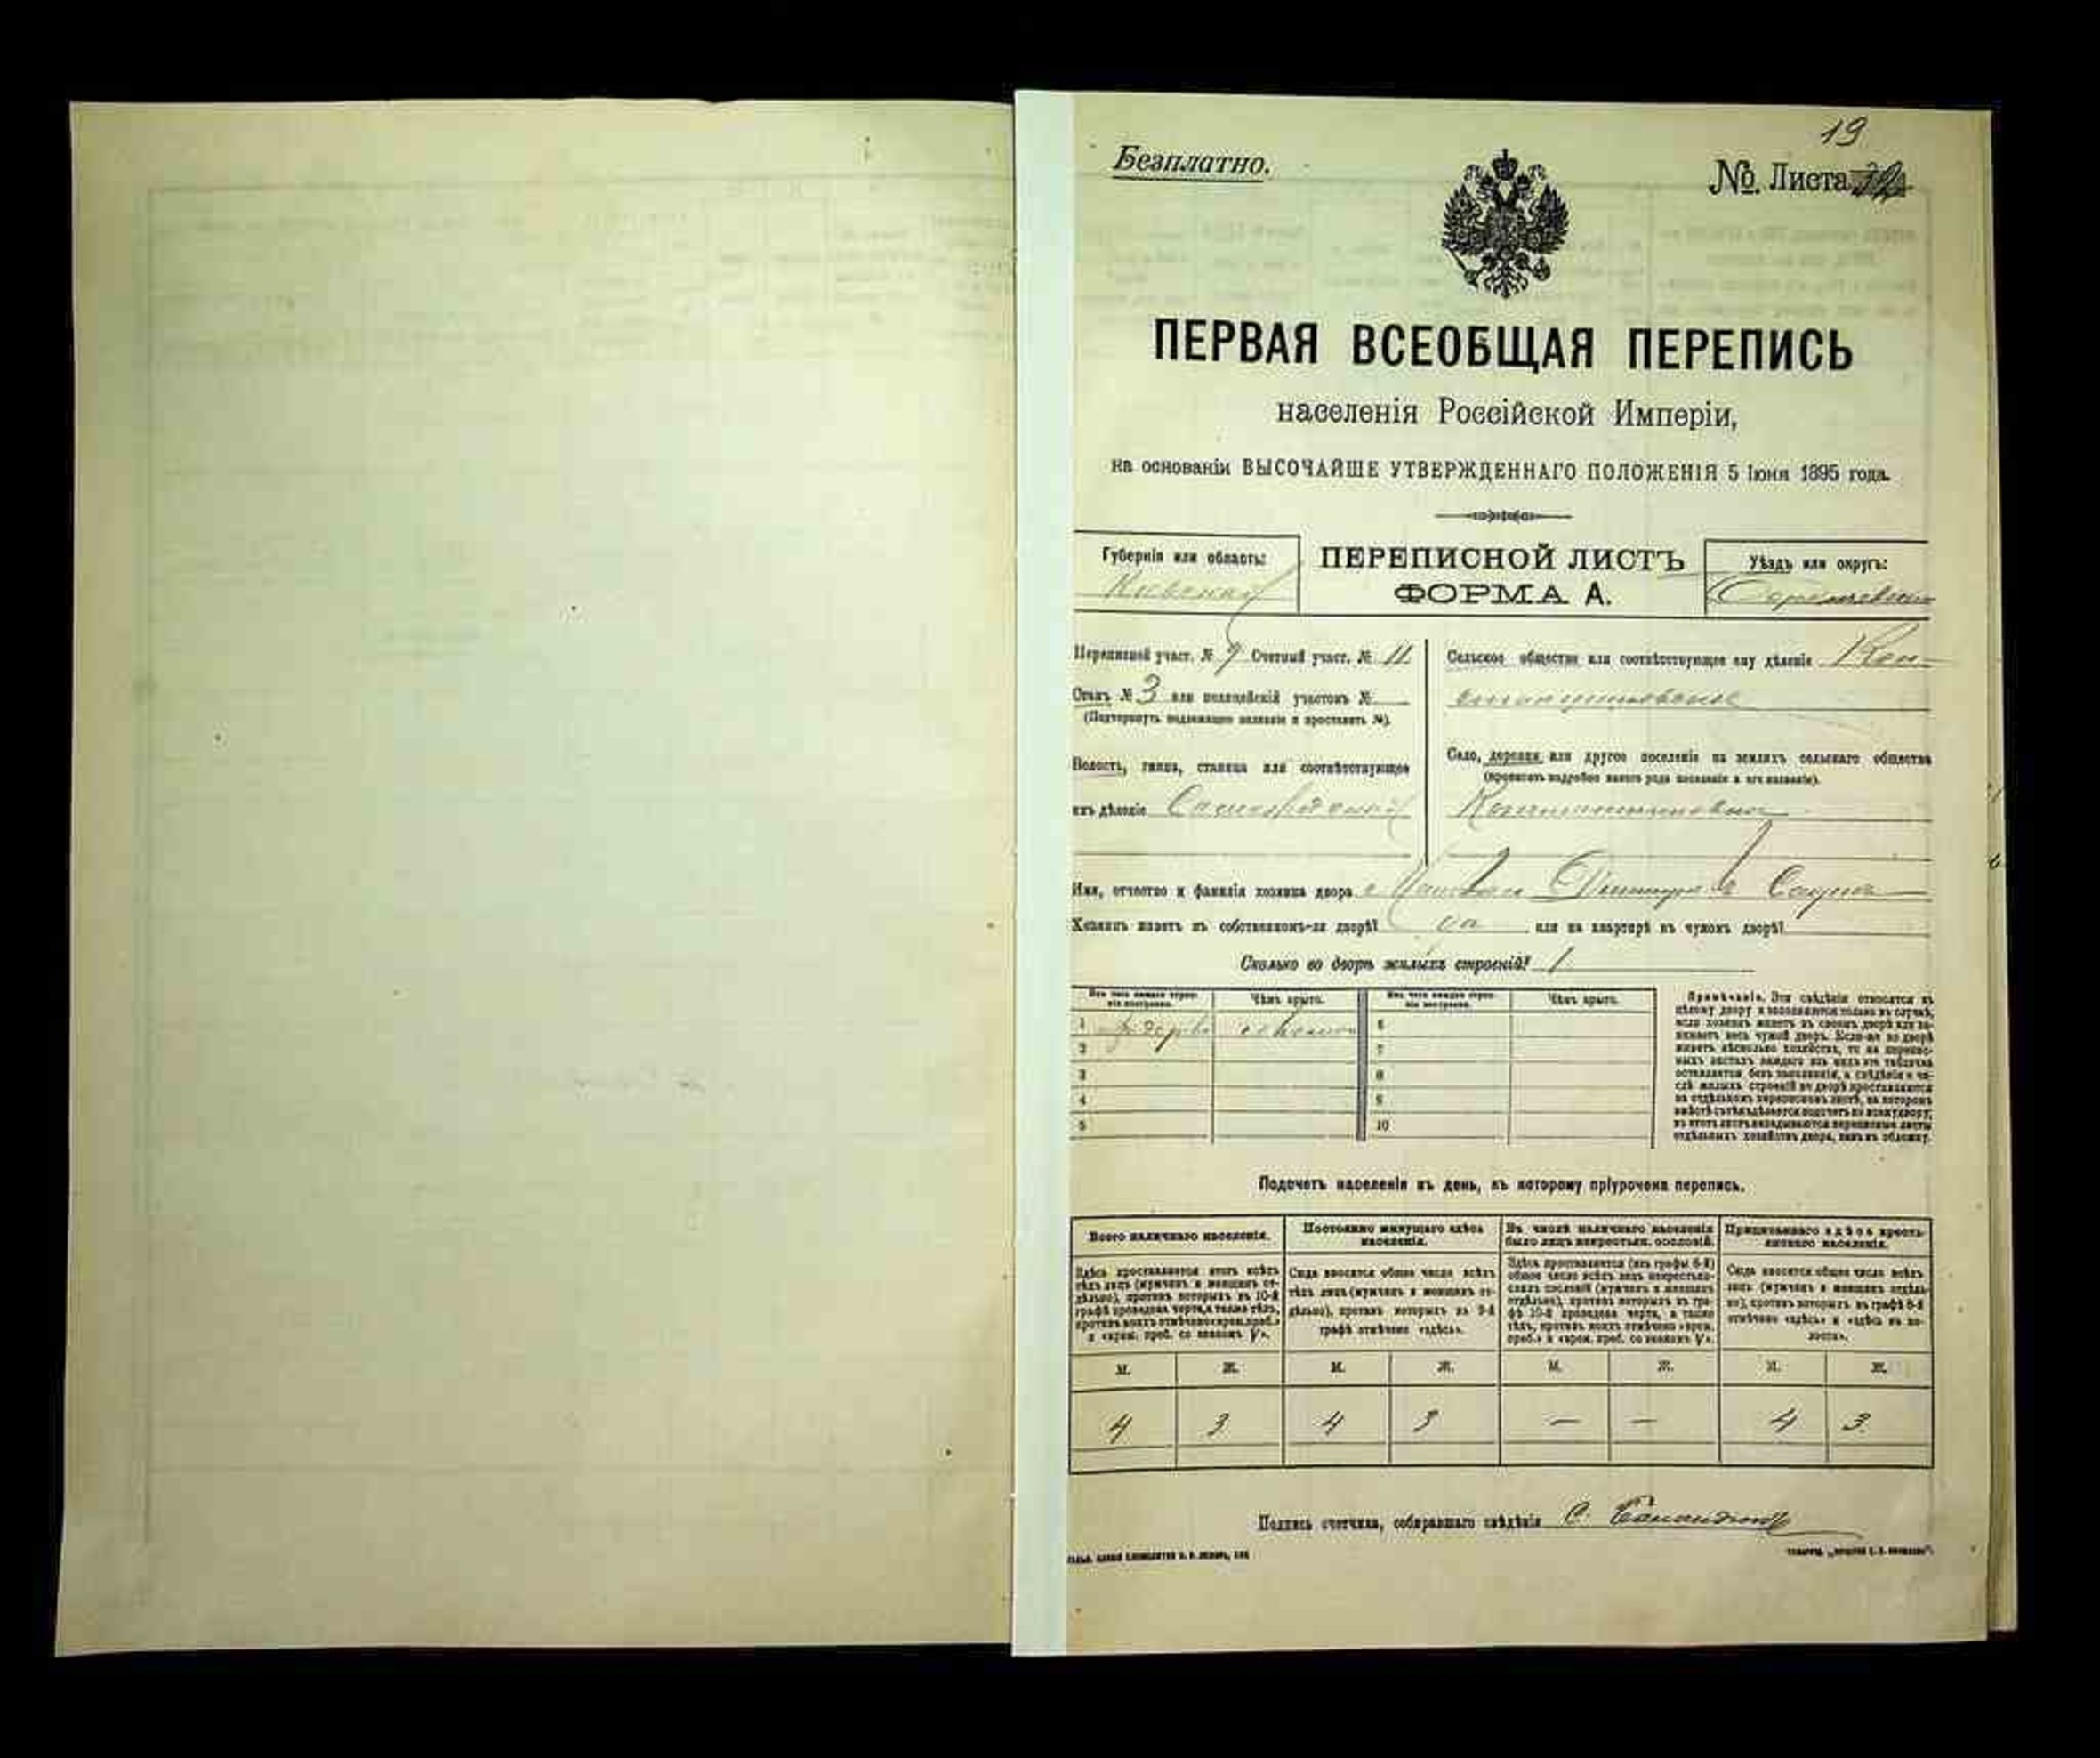 19
Безплатно.
№. Листа
ПЕРВАЯ ВСЕОБЩАЯ ПЕРЕПИСЬ
населенія Россійской Имперіи,
на основаніи ВЫСОЧАЙШЕ УТВЕРЖДЕННАГО ПОЛОЖЕНІЯ 5 Іюня 1895 года.
Губернія или область:
Кіевская
ПЕРЕПИСНОЙ ЛИСТЪ
ФОРМА А.
Уѣздъ или округъ:
Переписной участ. № 9 Счетный участ. № 11
Станъ № 3 или полицейскій участокъ №
(Подчеркнуть надлежащее названіе и проставить №).
Волость, гмина, станица или соотвѣтствующее
имъ дѣленіе
Сельское общество или соотвѣтствующее ему дѣленіе Кон-
стантиновское
Село, деревня или другое поселеніе на земляхъ сельскаго общества
(прописать подробно какого рода поселеніе и его названіе).
Константиновка
Имя, отчество и фамилія хозяина двора
Хозяинъ живетъ въ собственномъ-ли дворѣ? да или на квартирѣ въ чужомъ дворѣ?
Сколько во дворѣ жилыхъ строеній? 1
Изъ чего каждое строеніе построено.
Чѣмъ крыто.
Изъ чего каждое строеніе построено.
Чѣмъ крыто.
1 соломой 6
2 7
3 8
4 9
5 10
Примѣчаніе. Эти свѣдѣнія относятся къ
цѣлому двору и заполняются только въ случаѣ,
если хозяинъ живетъ въ своемъ дворѣ или за-
нимаетъ весь чужой дворъ. Если-же во дворѣ
живетъ нѣсколько хозяйствъ, то на перепис-
ныхъ листахъ каждаго изъ нихъ эта табличка
оставляется безъ заполненія, а свѣдѣнія о чи-
слѣ жилыхъ строеній во дворѣ проставляются
на отдѣльномъ переписномъ листѣ, на которомъ
вмѣстѣ съ тѣмъ дѣлается подсчетъ по всему двору;
въ этотъ листъ вкладываются переписные листы
отдѣльныхъ хозяйствъ двора, какъ въ обложку.
Подсчетъ населенія въ день, къ которому пріурочена перепись.
Всего наличнаго населенія.
Постоянно живущаго здѣсь населенія.
Въ числѣ наличнаго населенія было лицъ некрестьян. сословій.
Приписаннаго здѣсь крестьянскаго населенія.
Здѣсь проставляется итогъ всѣхъ
тѣхъ лицъ (мужчинъ и женщинъ от-
дѣльно), противъ которыхъ въ 10-й
графѣ проведена черта, а также тѣхъ,
противъ коихъ отмѣчено «врем. преб.»
и «врем. преб. со знакомъ V».
Сюда вносится общее число всѣхъ
тѣхъ лицъ (мужчинъ и женщинъ от-
дѣльно), противъ которыхъ въ 9-й
графѣ отмѣчено «здѣсь».
Здѣсь проставляется (изъ графы 6-й)
общее число всѣхъ лицъ некрестьян-
скихъ сословій (мужчинъ и женщинъ
отдѣльно), противъ которыхъ въ гра-
фѣ 10-й проведена черта, а также
тѣхъ, противъ коихъ отмѣчено «врем.
преб.» и «врем. преб. со знакомъ V».
Сюда вносится общее число всѣхъ
лицъ (мужчинъ и женщинъ отдѣль-
но), противъ которыхъ въ графѣ 8-й
отмѣчено «здѣсь» и «здѣсь въ во-
лости».
М. Ж. М. Ж. М. Ж. М. Ж.
4 3 4 3 — — 4 3
Подпись счетчика, собиравшаго свѣдѣнія С.